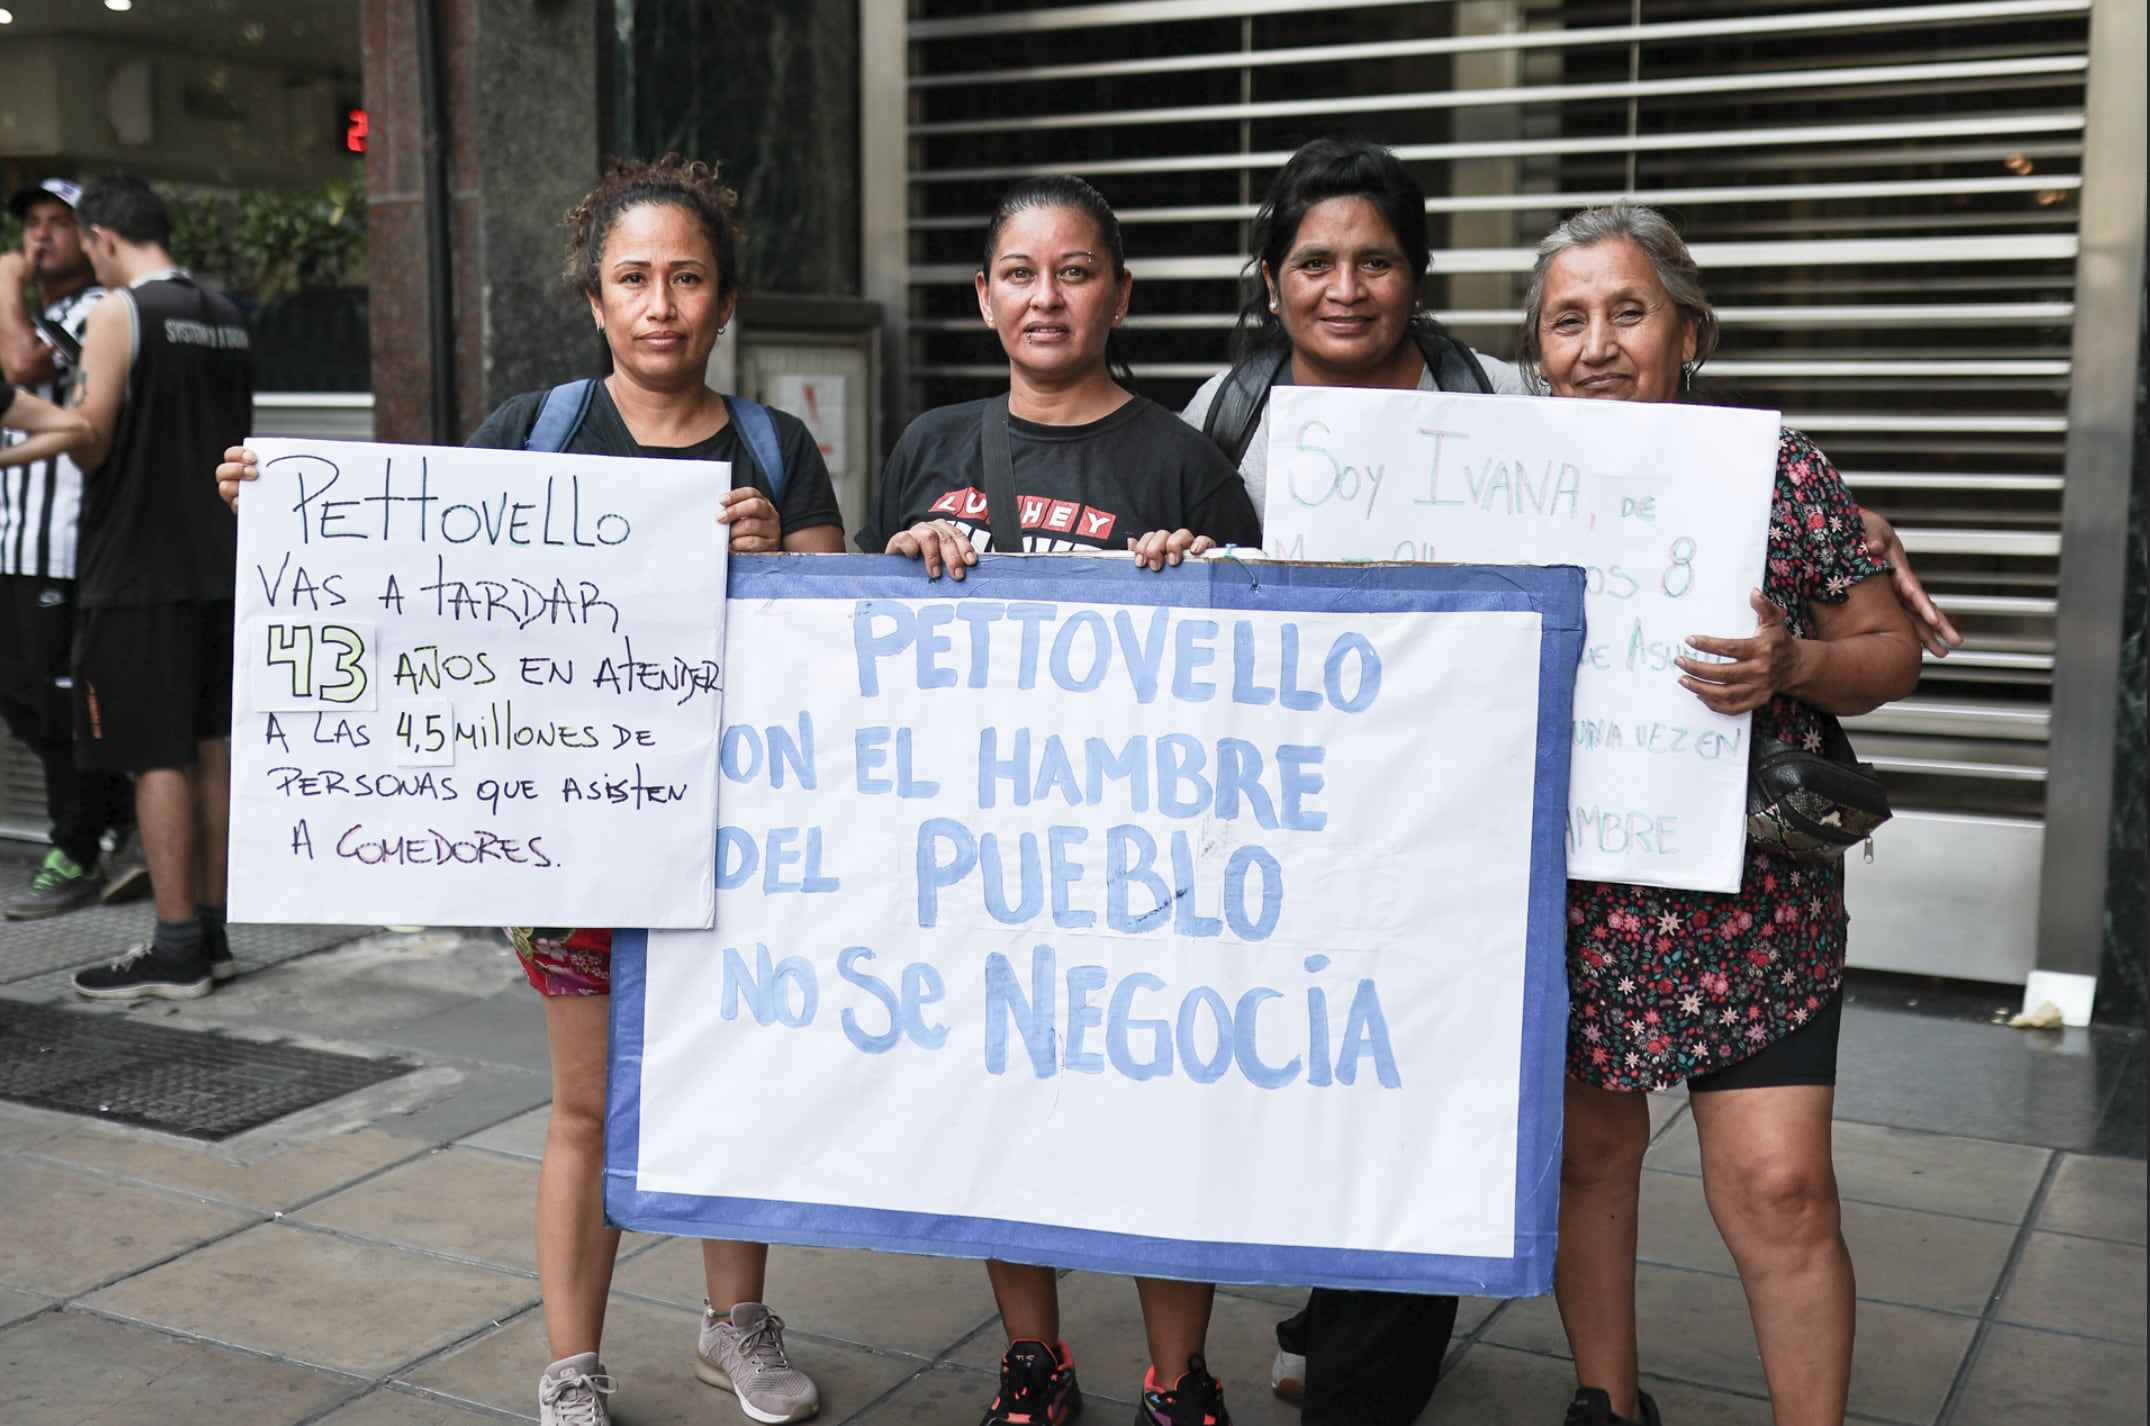 PETTOVELLO
VAS A TARDAR
43 AÑOS EN ATENDER
A LAS 4,5 MILLONES DE
PERSONAS QUE ASISTEN
A COMEDORES.
PETTOVELLO
ON EL HAMBRE
DEL PUEBLO
NO Se NEGOCIA
SOY IVANA, DE
8
UNA VEZ EN
AMBRE
SYSTEM